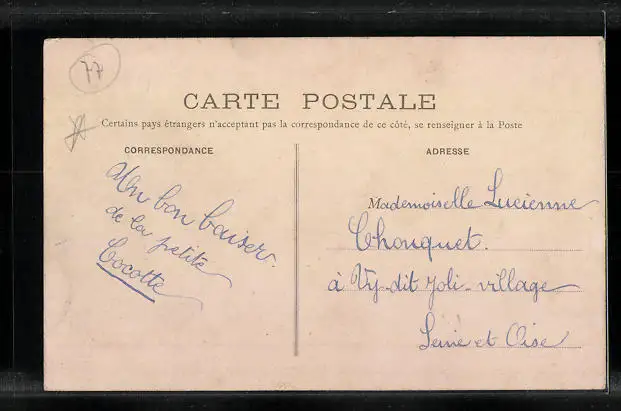 77
CARTE POSTALE
Certains pays étrangers n'acceptant pas la correspondance de ce côté, se renseigner à la Poste
CORRESPONDANCE
Un bon baiser
de la petite
Cocotte
ADRESSE
Mademoiselle Lucienne
Chouquet.
à Vy-dit-Joli-village
Seine et Oise